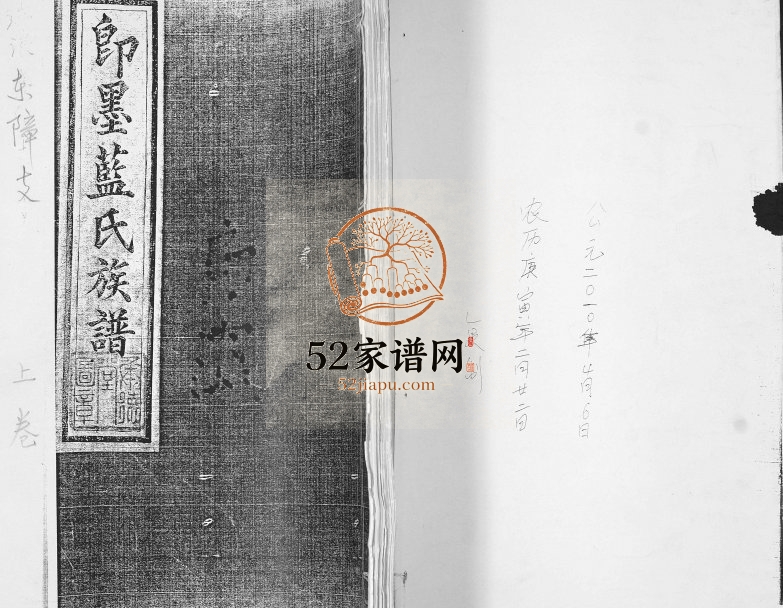 公元二〇一〇年4月6日
农历庚寅年二月廿二日
复制
即墨藍氏族譜
东障支
上卷
52家谱网
52jiapu.com